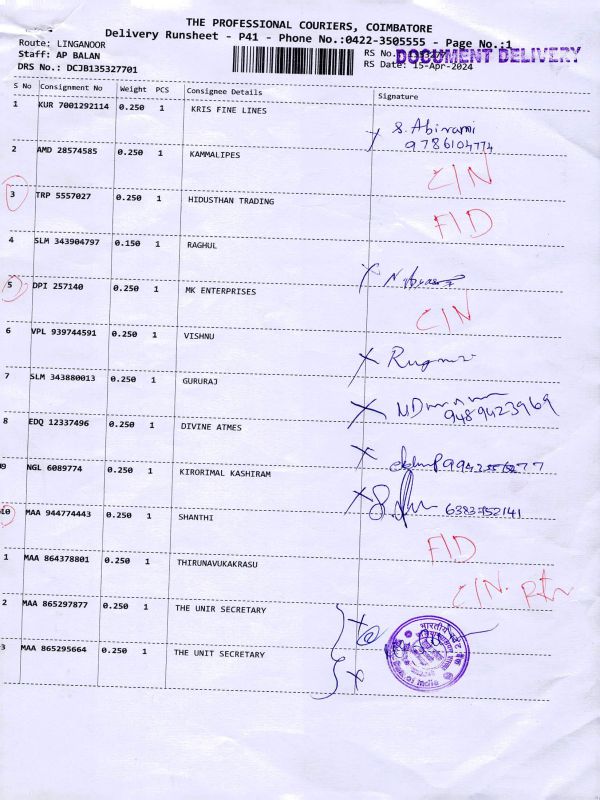 THE PROFESSIONAL COURIERS, COIMBATORE
Delivery Runsheet - P41 - Phone No.:0422-3505555 - Page No.:1
Route: LINGANOOR
Staff: AP BALAN
DRS No.: DCJB135327701
RS No.
DOCUMENT DELIVERY
RS Date: 15-Apr-2024
S No Consignment No Weight PCS Consignee Details Signature
1 KUR 7001292114 0.250 1 KRIS FINE LINES
S. Abirami
9786104774
2 AMD 28574585 0.250 1 KAMMALIPES
C/N
3 TRP 5557027 0.250 1 HIDUSTHAN TRADING
F/D
4 SLM 343904797 0.150 1 RAGHUL
5 DPI 257140 0.250 1 MK ENTERPRISES
C/N
6 VPL 939744591 0.250 1 VISHNU
7 SLM 343880013 0.250 1 GURURAJ
9489423969
8 EDQ 12337496 0.250 1 DIVINE ATMES
09 NGL 6089774 0.250 1 KIRORIMAL KASHIRAM
10 MAA 944774443 0.250 1 SHANTHI
F/D
1 MAA 864378801 0.250 1 THIRUNAVUKAKRASU
C/N. Rtn
2 MAA 865297877 0.250 1 THE UNIR SECRETARY
3 MAA 865295664 0.250 1 THE UNIT SECRETARY